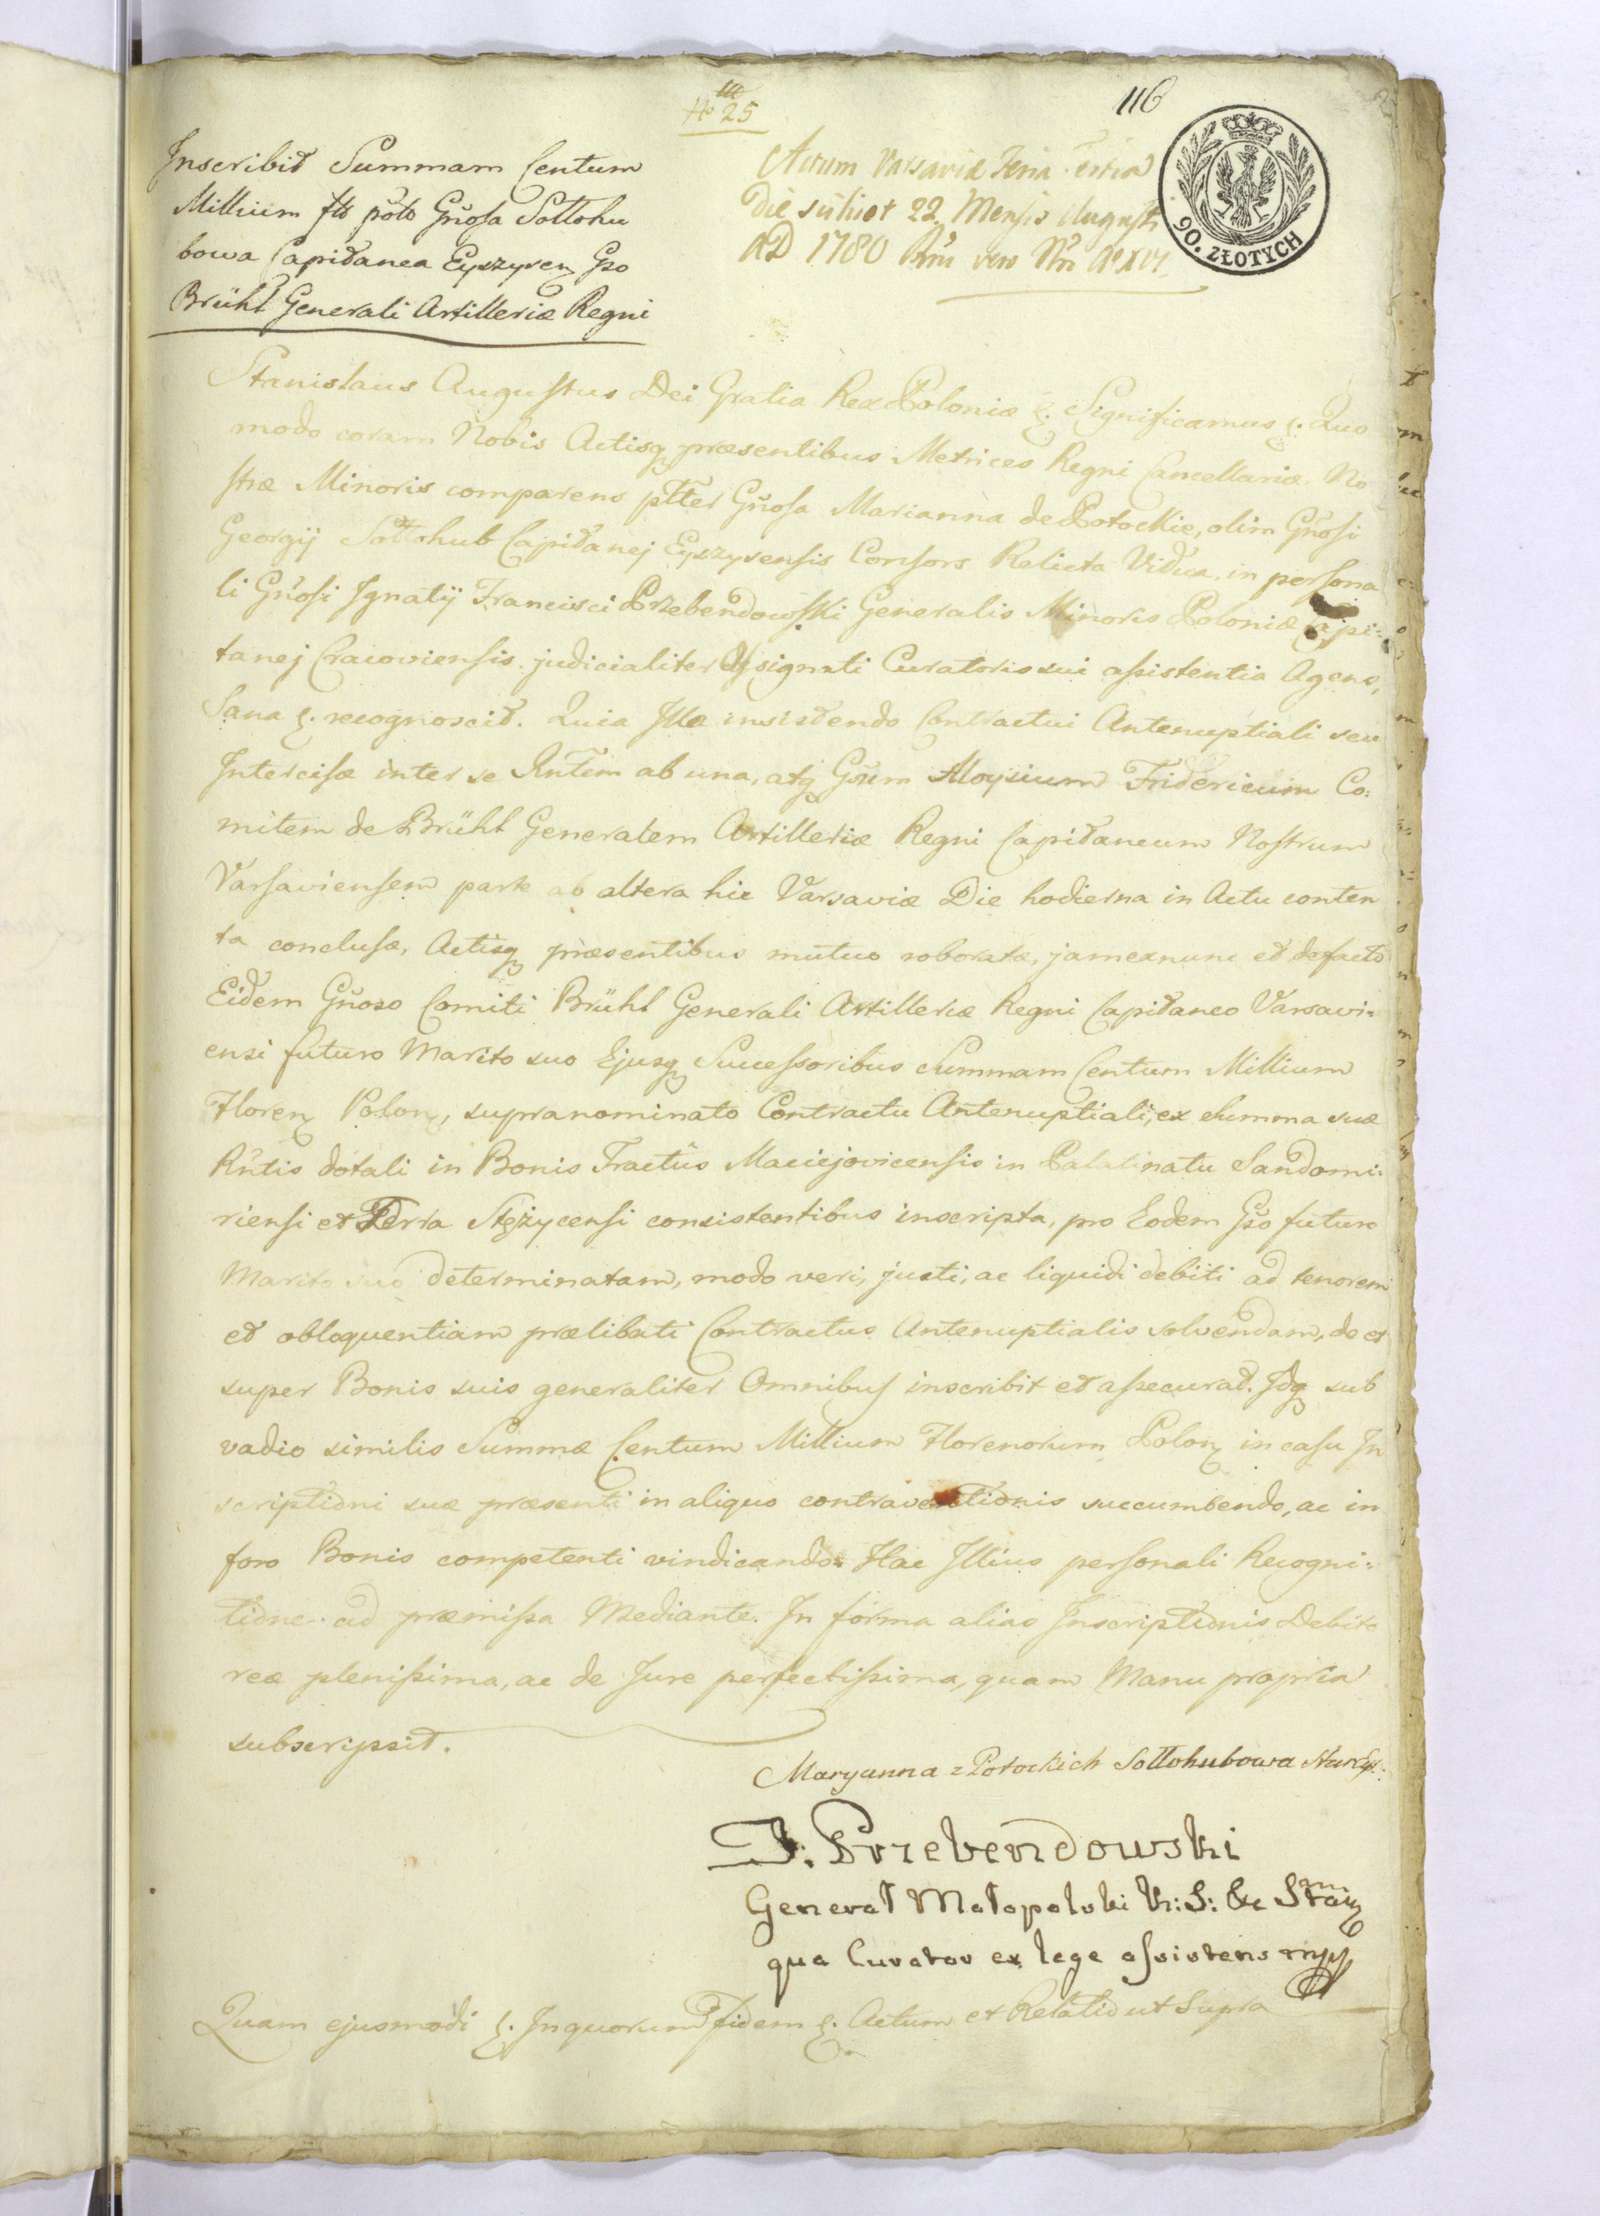 116
No 25
Inscribit Summam Centum
Millium flo polo Gnosa Sołłohu
bowa Capitanea Eyszyren Gso
Brühl Generali Artilleriæ Regni
Actum Varsaviæ Feria tertia
Die scilicet 22 Mensis Augusti
AD 1780 Rni vero Nri Ao XVI
90. ZŁOTYCH
Stanislaus Augustus Dei Gratia Rex Poloniæ &. Significamus &. Quo
modo coram Nobis Actisq præsentibus Metrices Regni Cancellariæ No
stræ Minoris comparens ptter Gnosa Marianna de Potockie, olim Gnosi
Georgij Sołłohub Capitanej Eyszysensis Consors Relicta Vidua, in persona
li Gnosi Ignatij Francisci Przebendowski Generalis Minoris Poloniæ Capi:
tanej Cracoviensis judicialiter assignati Curatoris sui assistentia Agens,
Sana &. recognoscit. Quia Illa insistendo Contractui Antenuptiali seu
Intercisæ inter se Rntem ab una, atq Gnum Aloysium Fridericum Co:
mitem de Brühl Generalem Artilleriæ Regni Capitaneum Nostrum
Varsaviensem parte ab altera hic Varsaviæ Die hodierna in Actu conten
ta conclusæ, Actisq præsentibus mutuo roboratæ, jam exnunc et defacto
Eidem Gnoso Comiti Brühl Generali Artilleriæ Regni Capitaneo Varsavi:
ensi futuro Marito suo Ejusq Successoribus Summam Centum Millium
Floren Polon, supranominato Contractu Antenuptiali, ex Summa sua
Rntis dotali in Bonis Tractus Maciejovicensis in Palatinatu Sandomi:
riensi et Terra Stężycensi consistentibus inscripta, pro Eodem Gso futuro
Marito suo determinatam, modo veri, justi, ac liquidi debiti ad tenorem
et obloquentiam prælibati Contractus Antenuptialis solvendam, de et
super Bonis suis generaliter Omnibus inscribit et assecurat. Idq sub
vadio similis Summæ Centum Millium Florenorum Polon in casu In
scriptioni suæ præsenti in aliquo contraventionis succumbendo, ac in
foro Bonis competenti vindicando. Hac Illius personali Recogni:
tione ad præmissa Mediante. In forma alias Inscriptionis Debito
reæ plenissima, ac de Jure perfectissima, quam Manu propria
subscripsit.
Maryanna z Potockich Sołłohubowa
J. Przebendowski
Generał Małopolski K: S: &c
qua Curator ex lege assistens mpp
Quam ejusmodi &. In quorum fidem &. Actum et Relatio ut Supra